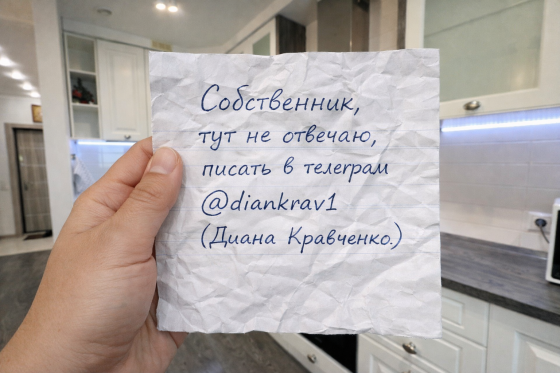 Собственник,
тут не отвечаю,
писать в телеграм
@diankrav1
(Диана Кравченко.)